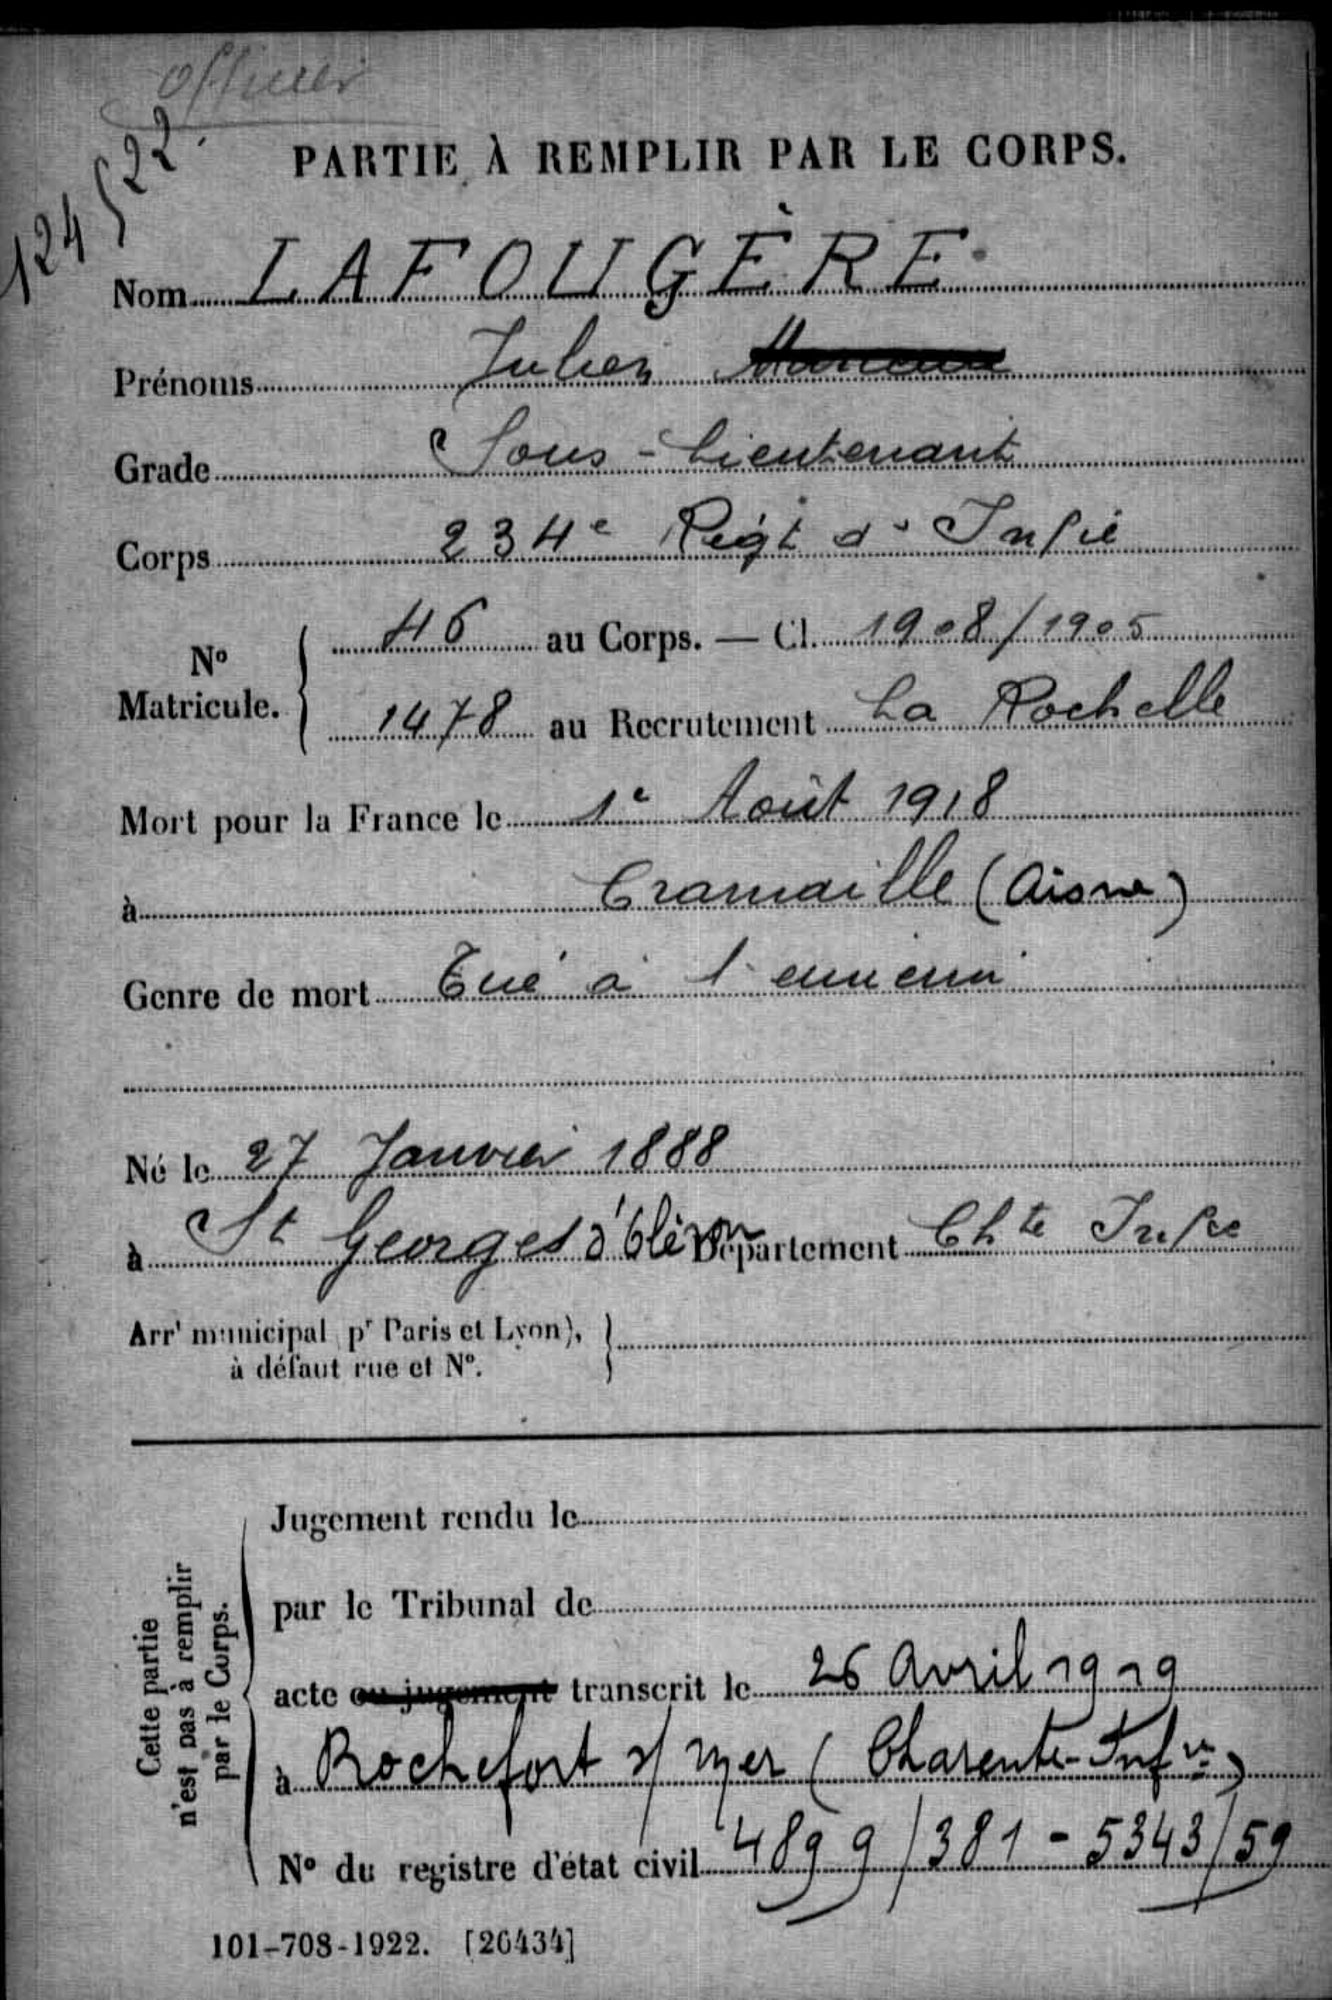 Officier
124522
PARTIE À REMPLIR PAR LE CORPS.
Nom LAFOUGÈRE
Prénoms Julien
Grade Sous-Lieutenant
Corps 234e Régt d' Infie
No Matricule. 46 au Corps. — Cl. 1908/1905
1478 au Recrutement La Rochelle
Mort pour la France le 1e Août 1918
à Cramaille (Aisne)
Genre de mort Tué à l'ennemi
Né le 27 Janvier 1888
à St Georges d'Oléron Département Chte Infre
Arrt municipal pr Paris et Lyon),
à défaut rue et No.
Jugement rendu le
par le Tribunal de
acte ou jugement transcrit le 26 Avril 1919
à Rochefort s/ mer (Charente-Infre)
No du registre d'état civil 4899/381 - 5343/59
Cette partie
n'est pas à remplir
par le Corps.
101-708-1922. [26434]